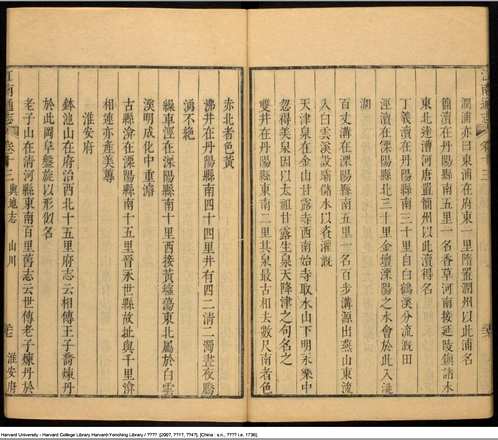 潤浦亦曰東浦在府東一里隋置潤州以此浦名
簡瀆在丹陽縣南五里一名香草河南接延陵鎮諸水
東北達漕河唐置簡州以此瀆得名
丁義瀆在丹陽縣南三十里自白鶴溪分流溉田
洴瀆在溧陽縣北三十里金壇溧陽之水會於此入洮
湖
百丈溝在溧陽縣南五里一名百步溝源出燕山東流
入白雲溪設壩儲水以資灌溉
天津泉在金山甘露寺西南始寺取水山下明永樂中
忽得美泉因以太祖甘露生泉天降津之句名之
雙井在丹陽縣東南二里其泉最古相去數尺南者色
赤北者色黃
沸井在丹陽縣南四十四里井有四二清二濁晝夜騰
湧不絕
繰車涇在溧陽縣南十里西接黃墟蕩東北屬於白雲
溪明成化中重濬
古縣渰在溧陽縣南十五里晉永世縣故址與千里渰
相連亦產美蓴
淮安府
鉢池山在府治西北十五里府志云相傳王子喬煉丹
於此岡阜盤旋以形似名
老子山在清河縣東南百里舊志云世傳老子煉丹於
江南通志
卷十三 輿地志 山川
淮安府
Harvard University - Harvard College Library Harvard-Yenching Library / ???? [2007, ????, ????]. [China : s.n., ???? i.e. 1736].